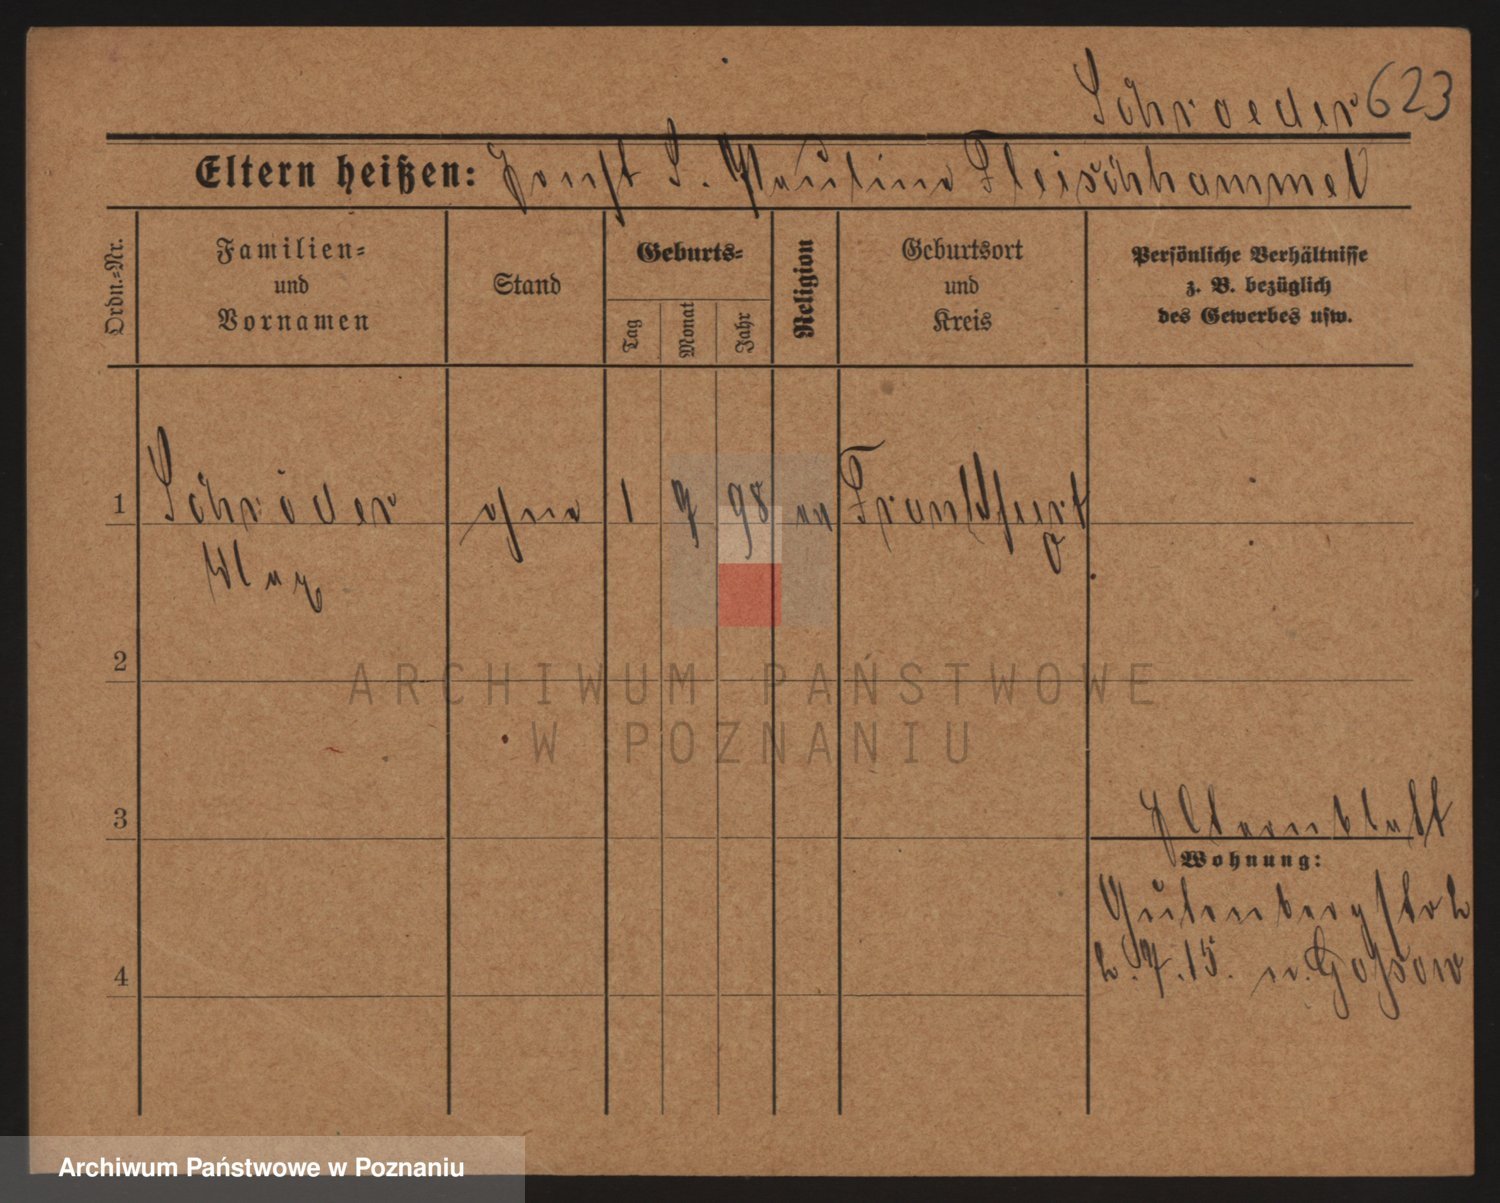 Schroeder 623
Eltern heißen: Ernst S. Pauline Fleischhammel
Ordn.=Nr.
Familien=
und
Vornamen
Stand
Geburts=
Tag
Monat
Jahr
Religion
Geburtsort
und
Kreis
Persönliche Verhältnisse
z. B. bezüglich
des Gewerbes usw.
1 Schröder ohne 1 7 98 ev Frankfurt
O
Max
2
3 Elternblatt
Wohnung:
Gutenbergstr
7.15. n. Gossow
4
ARCHIWUM PAŃSTWOWE
W POZNANIU
Archiwum Państwowe w Poznaniu